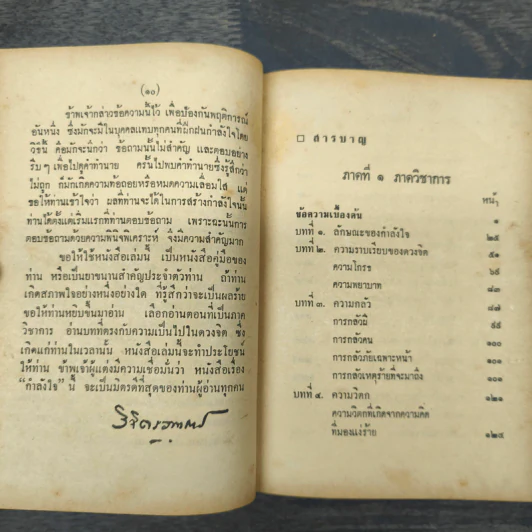 (๑๐)
ข้าพเจ้ากล่าวข้อความนี้ไว้ เพื่อป้องกันพฤติการณ์
อันหนึ่ง ซึ่งมักจะมีในบุคคลแทบทุกคนที่ฝึกฝนกำลังใจโดย
วิธีนี้ คือมักจะนึกว่า ข้อถามนั้นไม่สำคัญ และตอบอย่าง
รีบๆ เพื่อไปดูคำทำนาย ครั้นไปพบคำทำนายซึ่งรู้สึกว่า
ไม่ถูก ก็มักเกิดความท้อถอยหรือหมดความเลื่อมใส แต่
ขอให้ท่านเข้าใจว่า ผลที่ท่านจะได้ในการสร้างกำลังใจนั้น
ท่านได้ตั้งแต่เริ่มแรกที่ท่านตอบข้อถาม เพราะฉะนั้นการ
ตอบข้อถามด้วยความพินิจพิเคราะห์ จึงมีความสำคัญมาก
ขอให้ใช้หนังสือเล่มนี้ เป็นหนังสือคู่มือของ
ท่าน หรือเป็นยาขนานสำคัญประจำตัวท่าน ถ้าท่าน
เกิดสภาพใจอย่างหนึ่งอย่างใด ที่รู้สึกว่าจะเป็นผลร้าย
ขอให้ท่านหยิบขึ้นมาอ่าน เลือกอ่านตอนที่เป็นภาค
วิชาการ อ่านบทที่ตรงกับความเป็นไปในดวงจิต ซึ่ง
เกิดแก่ท่านในเวลานั้น หนังสือเล่มนี้จะทำประโยชน์
ให้ท่าน ข้าพเจ้าผู้แต่งมีความเชื่อมั่นว่า หนังสือเรื่อง
“กำลังใจ” นี้ จะเป็นมิตรดีที่สุดของท่านผู้อ่านทุกคน
สารบาญ
ภาคที่ ๑ ภาควิชาการ
หน้า
ข้อความเบื้องต้น ๑
บทที่ ๑. ลักษณะของกำลังใจ ๒๕
บทที่ ๒. ความราบเรียบของดวงจิต ๕๑
ความโกรธ ๖๕
ความพยาบาท ๘๓
บทที่ ๓. ความกลัว ๘๗
การกลัวผี ๙๙
การกลัวคน ๑๐๐
การกลัวภัยเฉพาะหน้า ๑๐๑
การกลัวเหตุร้ายที่จะมาถึง ๑๐๓
บทที่ ๔. ความวิตก ๑๒๑
ความวิตกที่เกิดจากความคิด
ที่มองแง่ร้าย ๑๒๔